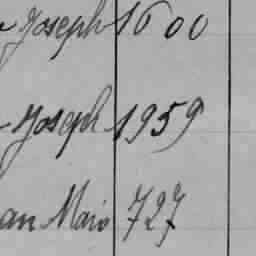 Joseph 1600
Joseph 1959
an Mario 727